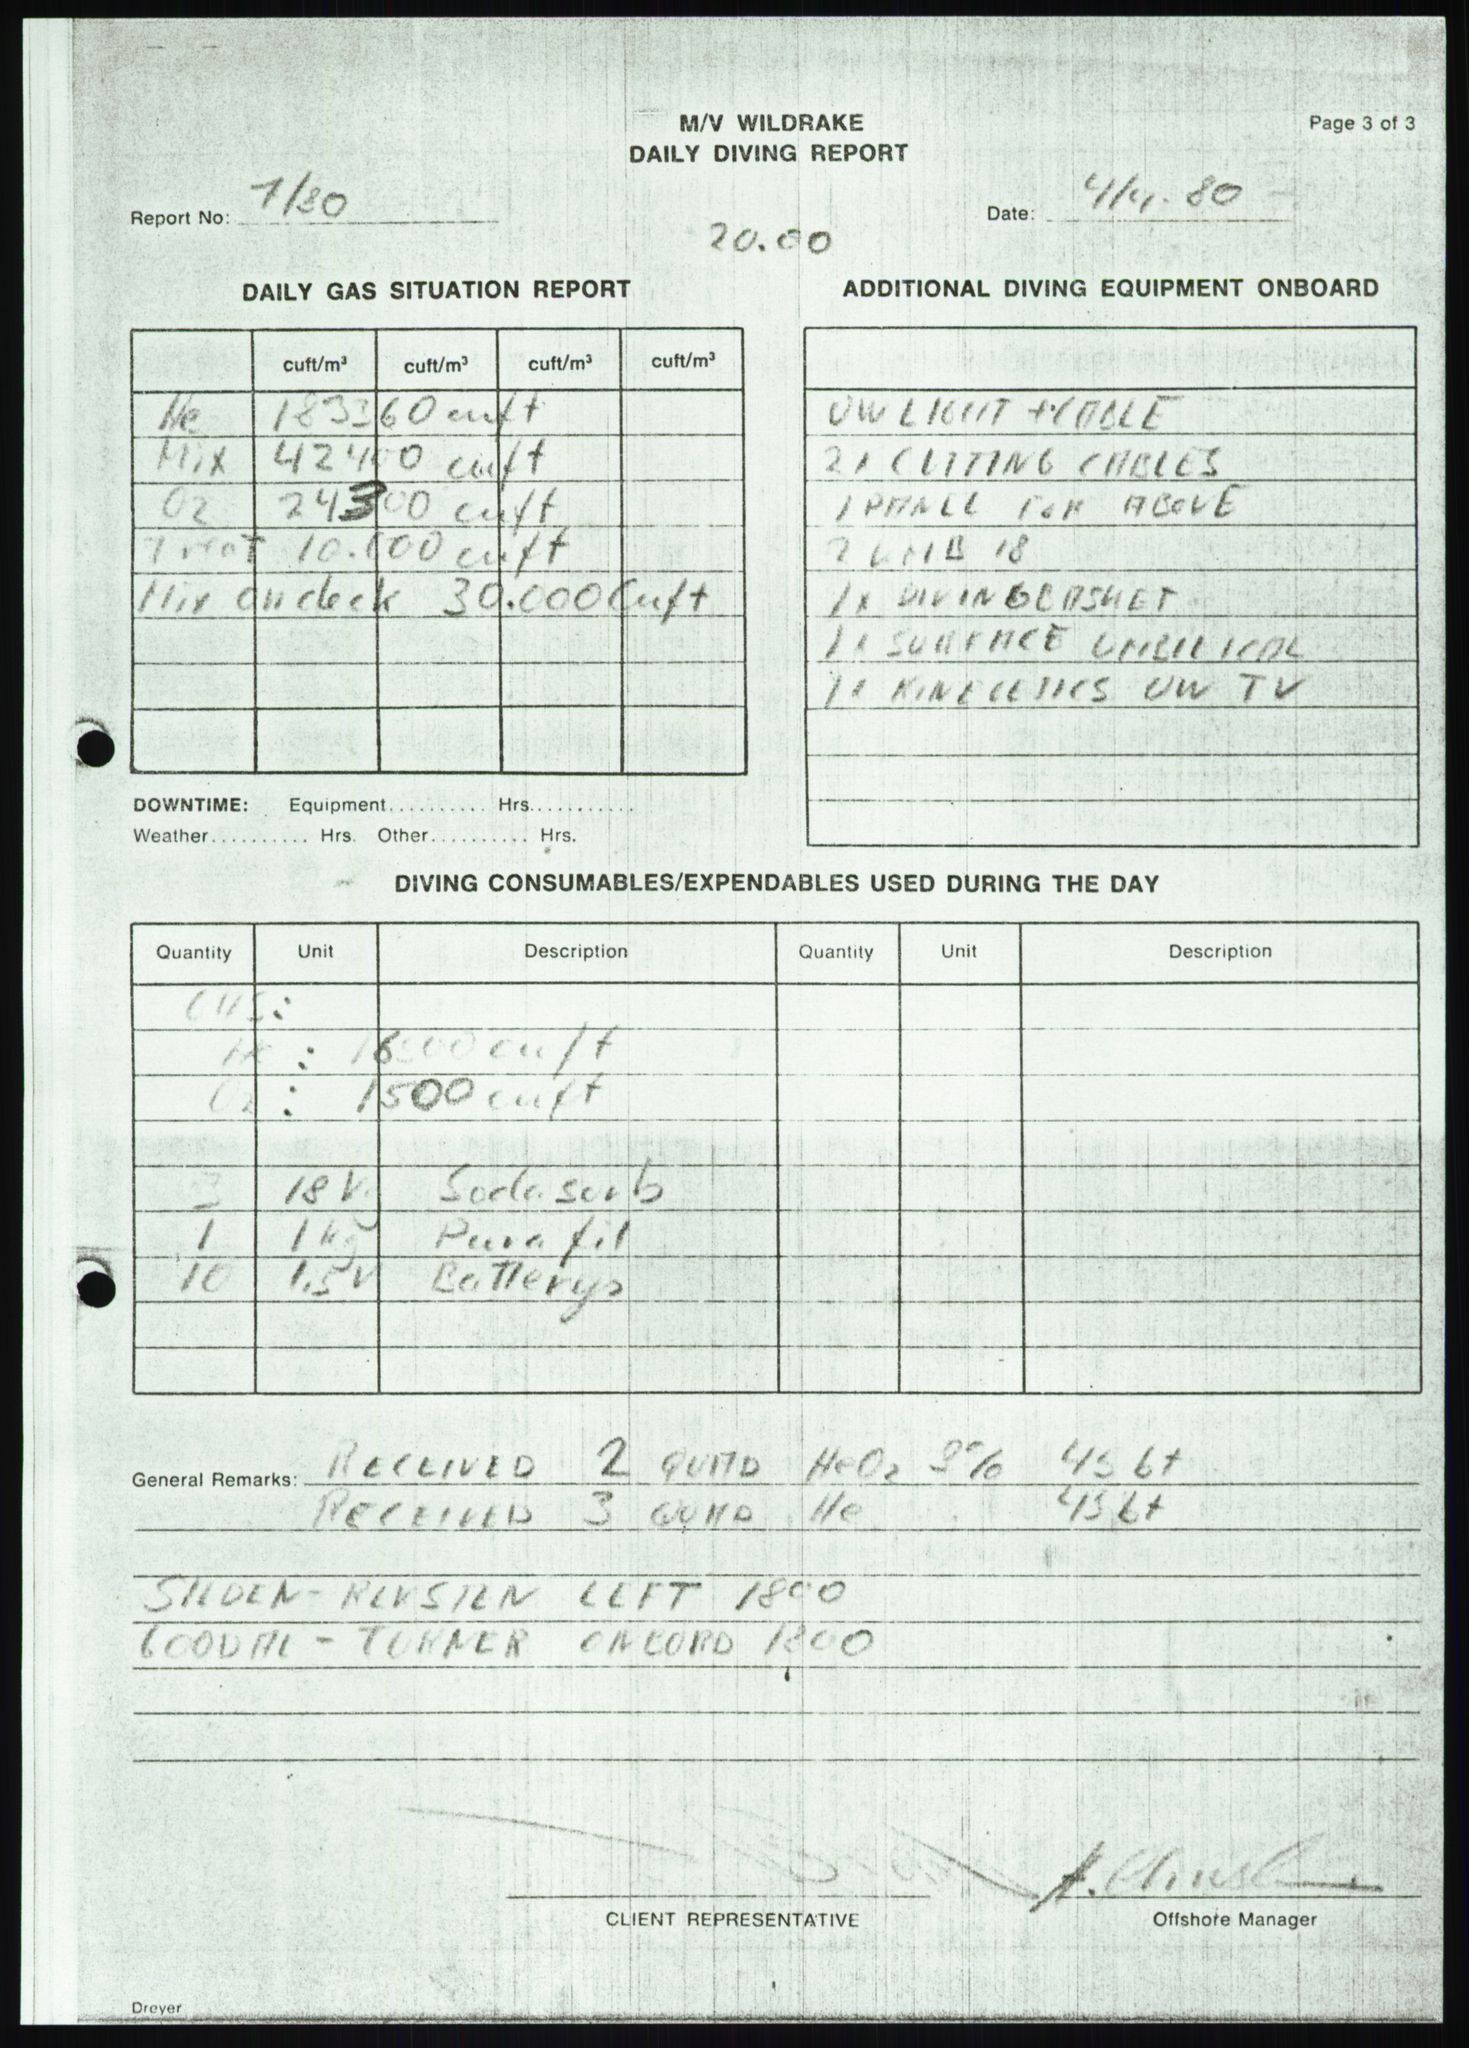 M/V WILDRAKE
Page 3 of 3
DAILY DIVING REPORT
Report No: 7/80
Date: 4/4.80
20.00
DAILY GAS SITUATION REPORT
cuft/m³ cuft/m³ cuft/m³ cuft/m³
He 183360 cuft
Mix 42400 cuft
O2 24300 cuft
Treat 10.000 cuft
Mix on deck 30.000 Cuft
ADDITIONAL DIVING EQUIPMENT ONBOARD
UW LIGHT + CABLE
2 x CUTTING CABLES
1 PANEL FOR ABOVE
2 18
1x DIVINGBASKET
1x SURFACE UMBILICAL
1x UW TV
DOWNTIME: Equipment.......... Hrs...........
Weather.......... Hrs. Other.......... Hrs.
DIVING CONSUMABLES/EXPENDABLES USED DURING THE DAY
Quantity Unit Description Quantity Unit Description
GAS:
He : 16500 cuft
O2 : 1500 cuft
3 18 Sodasorb
1 1 kg Purafil
10 1.5V Batterys
General Remarks: RECEIVED 2 QUAD HeO2 45 bt
RECEIVED 3 QUAD He 45 bt
LEFT 1800
GOODAL - TURNER ONBORD 1800
CLIENT REPRESENTATIVE
Offshore Manager
Dreyer